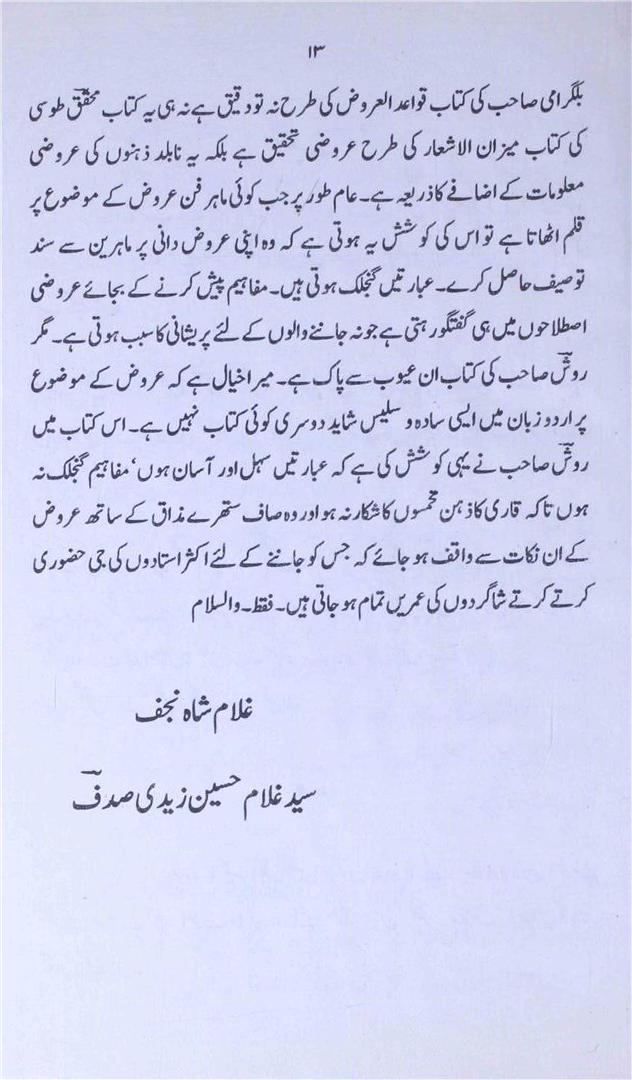 ۱۳
بلگرامی صاحب کی کتاب قواعد العروض کی طرح نہ تو دقیق ہے نہ ہی یہ کتاب محقق طوسی
کی کتاب میزان الاشعار کی طرح عروضی تحقیق ہے بلکہ یہ نابلد ذہنوں کی عروضی
معلومات کے اضافے کا ذریعہ ہے۔ عام طور پر جب کوئی ماہر فن عروض کے موضوع پر
قلم اٹھاتا ہے تو اس کی کوشش یہ ہوتی ہے کہ وہ اپنی عروض دانی پر ماہرین سے سند
توصیف حاصل کرے۔ عبارتیں گنجلک ہوتی ہیں۔ مفاہیم پیش کرنے کے بجائے عروضی
اصطلاحوں میں ہی گفتگو رہتی ہے جو نہ جاننے والوں کے لئے پریشانی کا سبب ہوتی ہے۔ مگر
روشؔ صاحب کی کتاب ان عیوب سے پاک ہے۔ میرا خیال ہے کہ عروض کے موضوع
پر اردو زبان میں ایسی سادہ و سلیس شاید دوسری کوئی کتاب نہیں ہے۔ اس کتاب میں
روشؔ صاحب نے یہی کوشش کی ہے کہ عبارتیں سہل اور آسان ہوں، مفاہیم گنجلک نہ
ہوں تاکہ قاری کا ذہن مخمسوں کا شکار نہ ہو اور وہ صاف ستھرے مذاق کے ساتھ عروض
کے ان نکات سے واقف ہو جائے کہ جس کو جاننے کے لئے اکثر استادوں کی جی حضوری
کرتے کرتے شاگردوں کی عمریں تمام ہو جاتی ہیں۔ فقط۔ والسلام
غلام شاہ نجف
سید غلام حسین زیدی صدفؔ